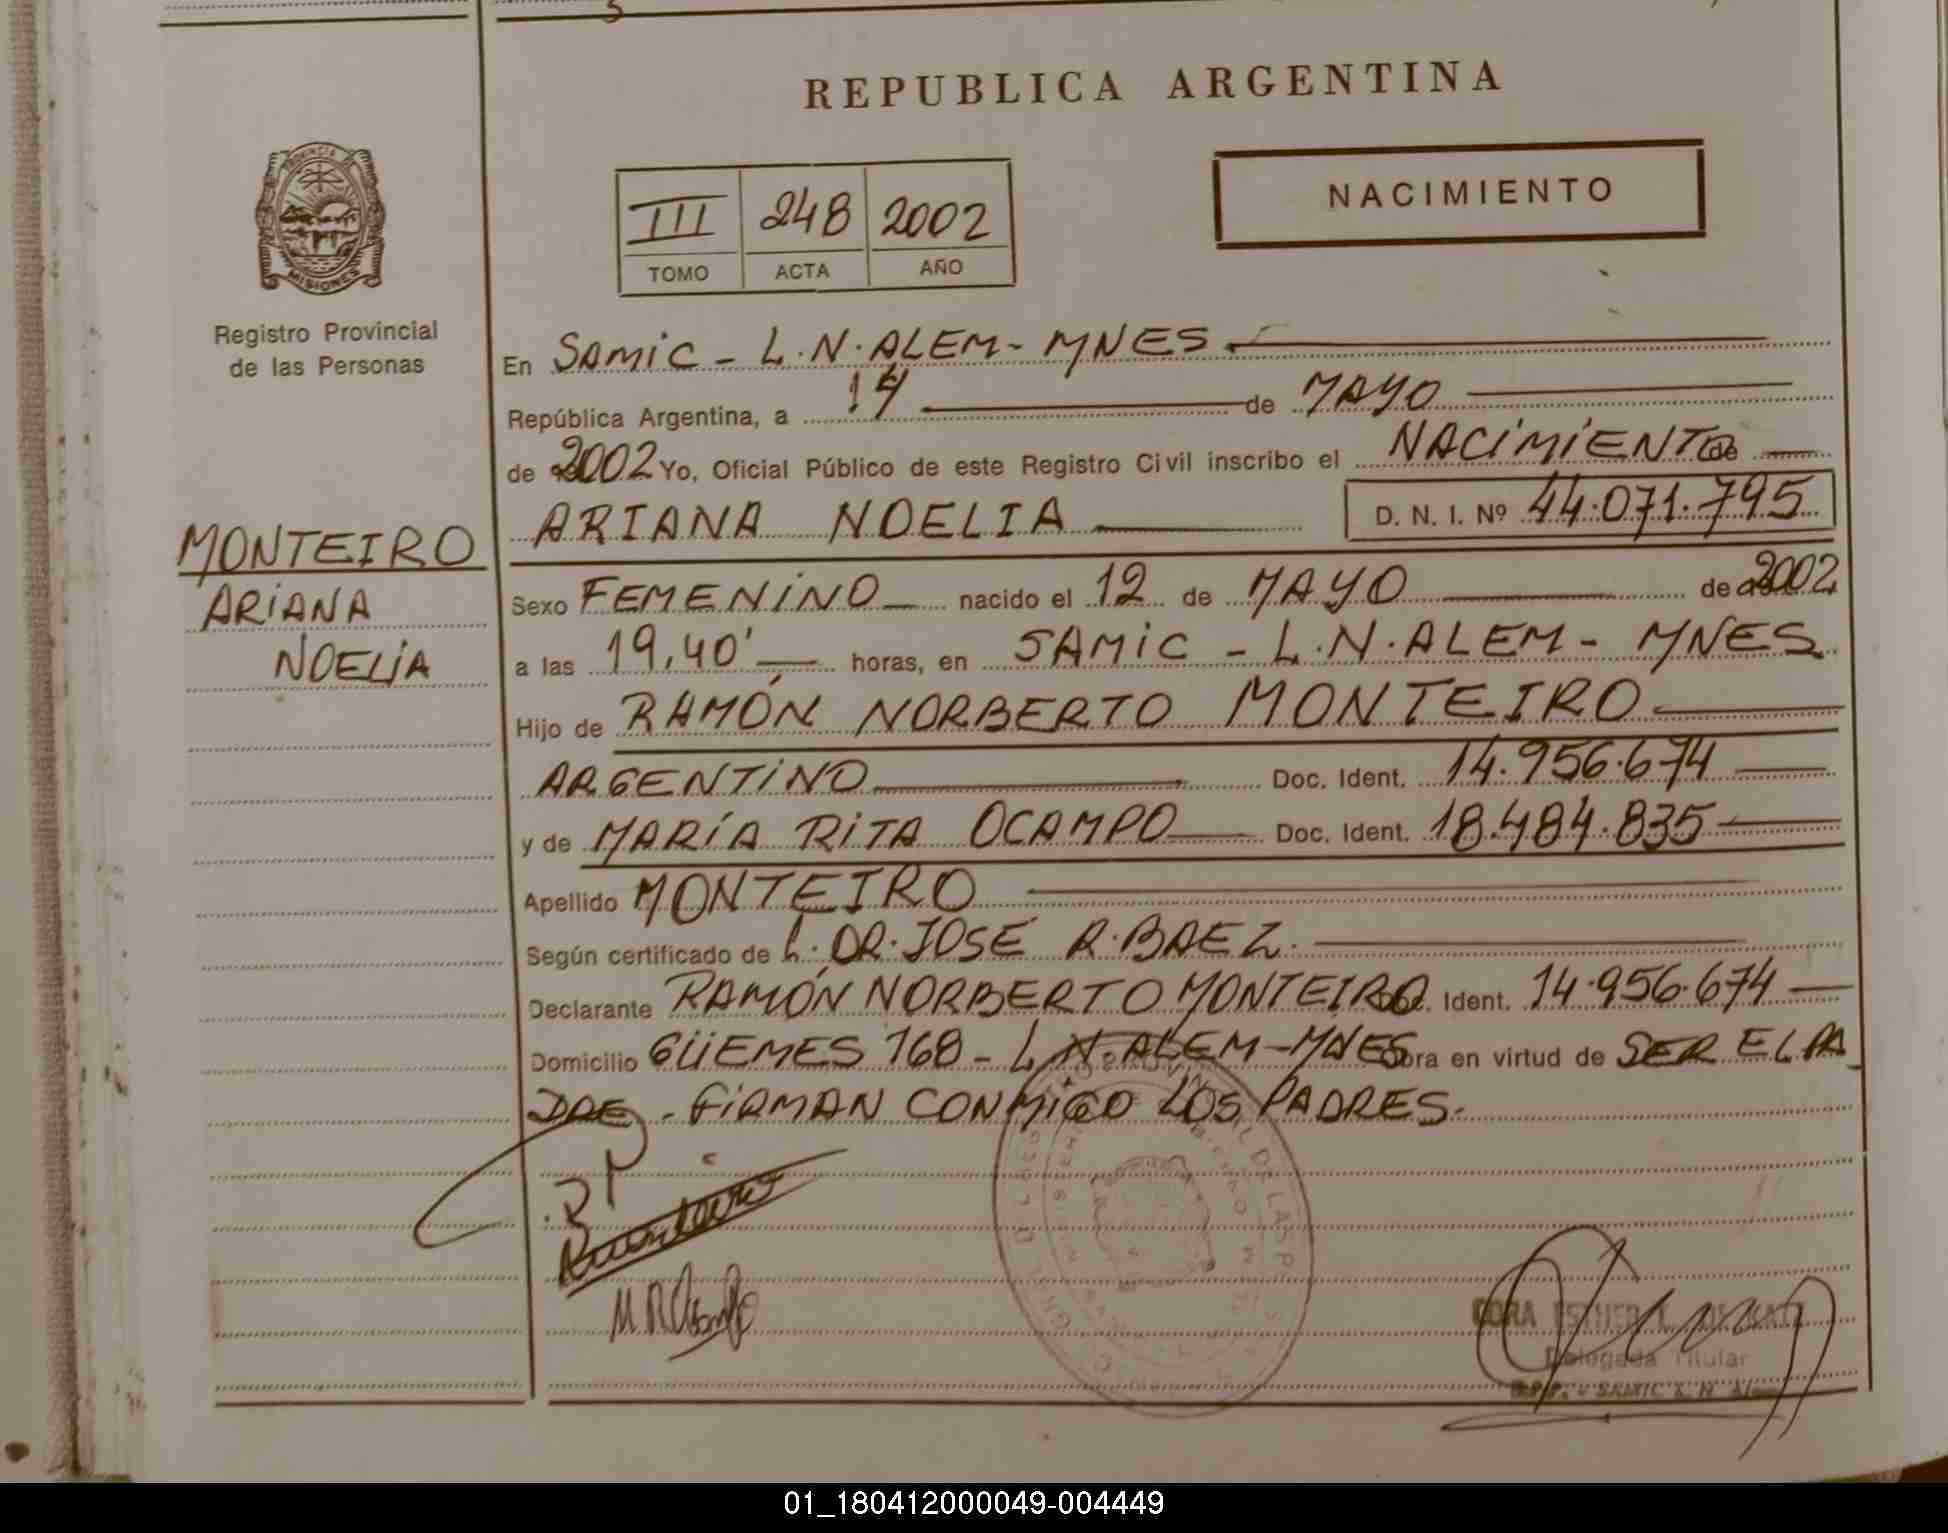 REPUBLICA ARGENTINA
NACIMIENTO
III 248 2002
TOMO ACTA AÑO
PROVINCIA DE
MISIONES
Registro Provincial
de las Personas
MONTEIRO
ARIANA
NOELIA
En SAMIC - L.N. ALEM - MNES
República Argentina, a 14 de MAYO
de 2002 Yo, Oficial Público de este Registro Civil inscribo el NACIMIENTO de
ARIANA NOELIA D. N. I. Nº 44.071.795
Sexo FEMENINO nacido el 12 de MAYO de 2002
a las 19,40' horas, en SAMIC - L.N. ALEM - MNES
Hijo de RAMÓN NORBERTO MONTEIRO
ARGENTINO Doc. Ident. 14.956.674
y de MARÍA RITA OCAMPO Doc. Ident. 18.484.835
Apellido MONTEIRO
Según certificado de L. DR. JOSE R. BAEZ.
Declarante RAMÓN NORBERTO MONTEIRO Doc. Ident. 14.956.674
Domicilio GÜEMES 168 - L.N. ALEM - MNES Obra en virtud de SER EL PA
DRE. FIRMAN CONMIGO LOS PADRES.
M R Ocampo
Delegada Titular
01_180412000049-004449